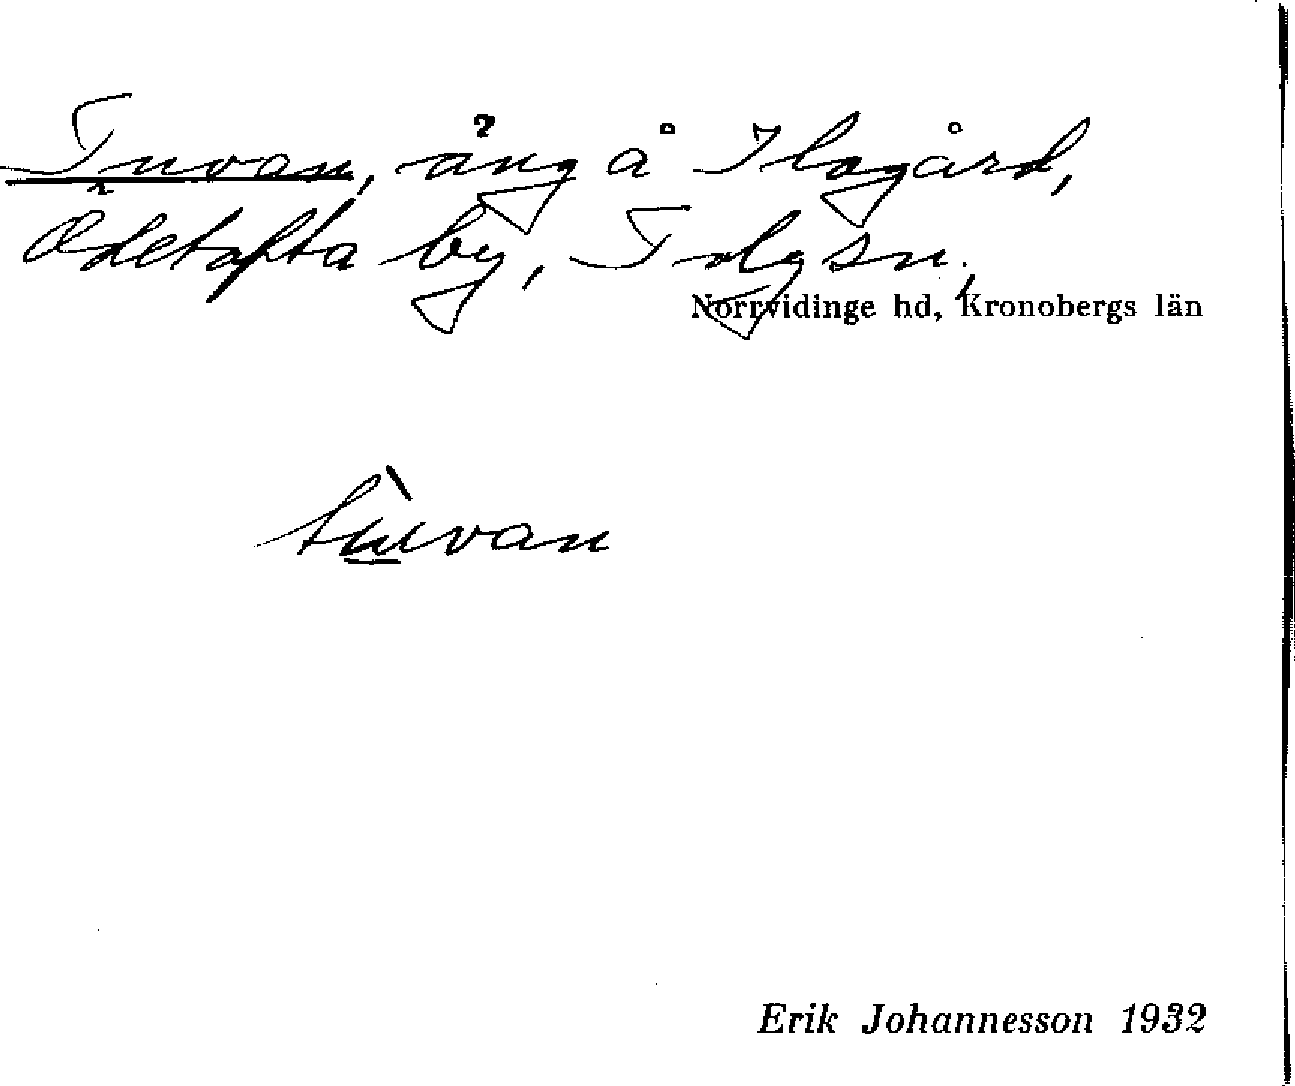 Tuvan, äng å
Ödetofta by, Tolg sn,
Norrvidinge hd, Kronobergs län
tù̲van
Erik Johannesson 1932